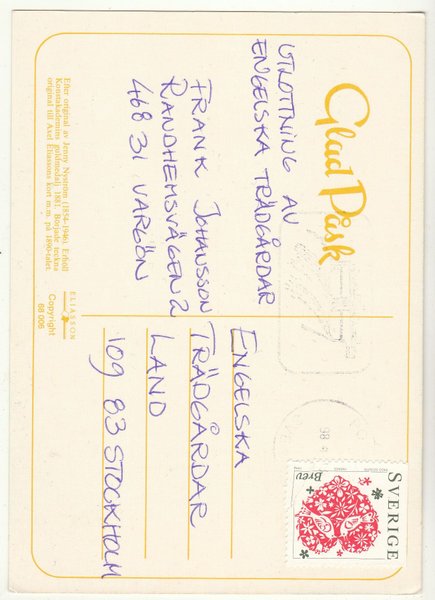 Glad Påsk
UTLOTTNING AV
ENGELSKA TRÄDGÅRDAR
FRANK JOHANSSON
RANDHEMSVÄGEN 2
468 31 VARGÖN
Efter original av Jenny Nyström (1854–1946). Erhöll
Konstakademins guldmedalj 1881. Började teckna
original till Axel Eliassons kort m.m. på 1890-talet.
ELIASSON
Copyright
68 006
SVERIGE
Brev
ENGELSKA
TRÄDGÅRDAR
LAND
109 83 STOCKHOLM